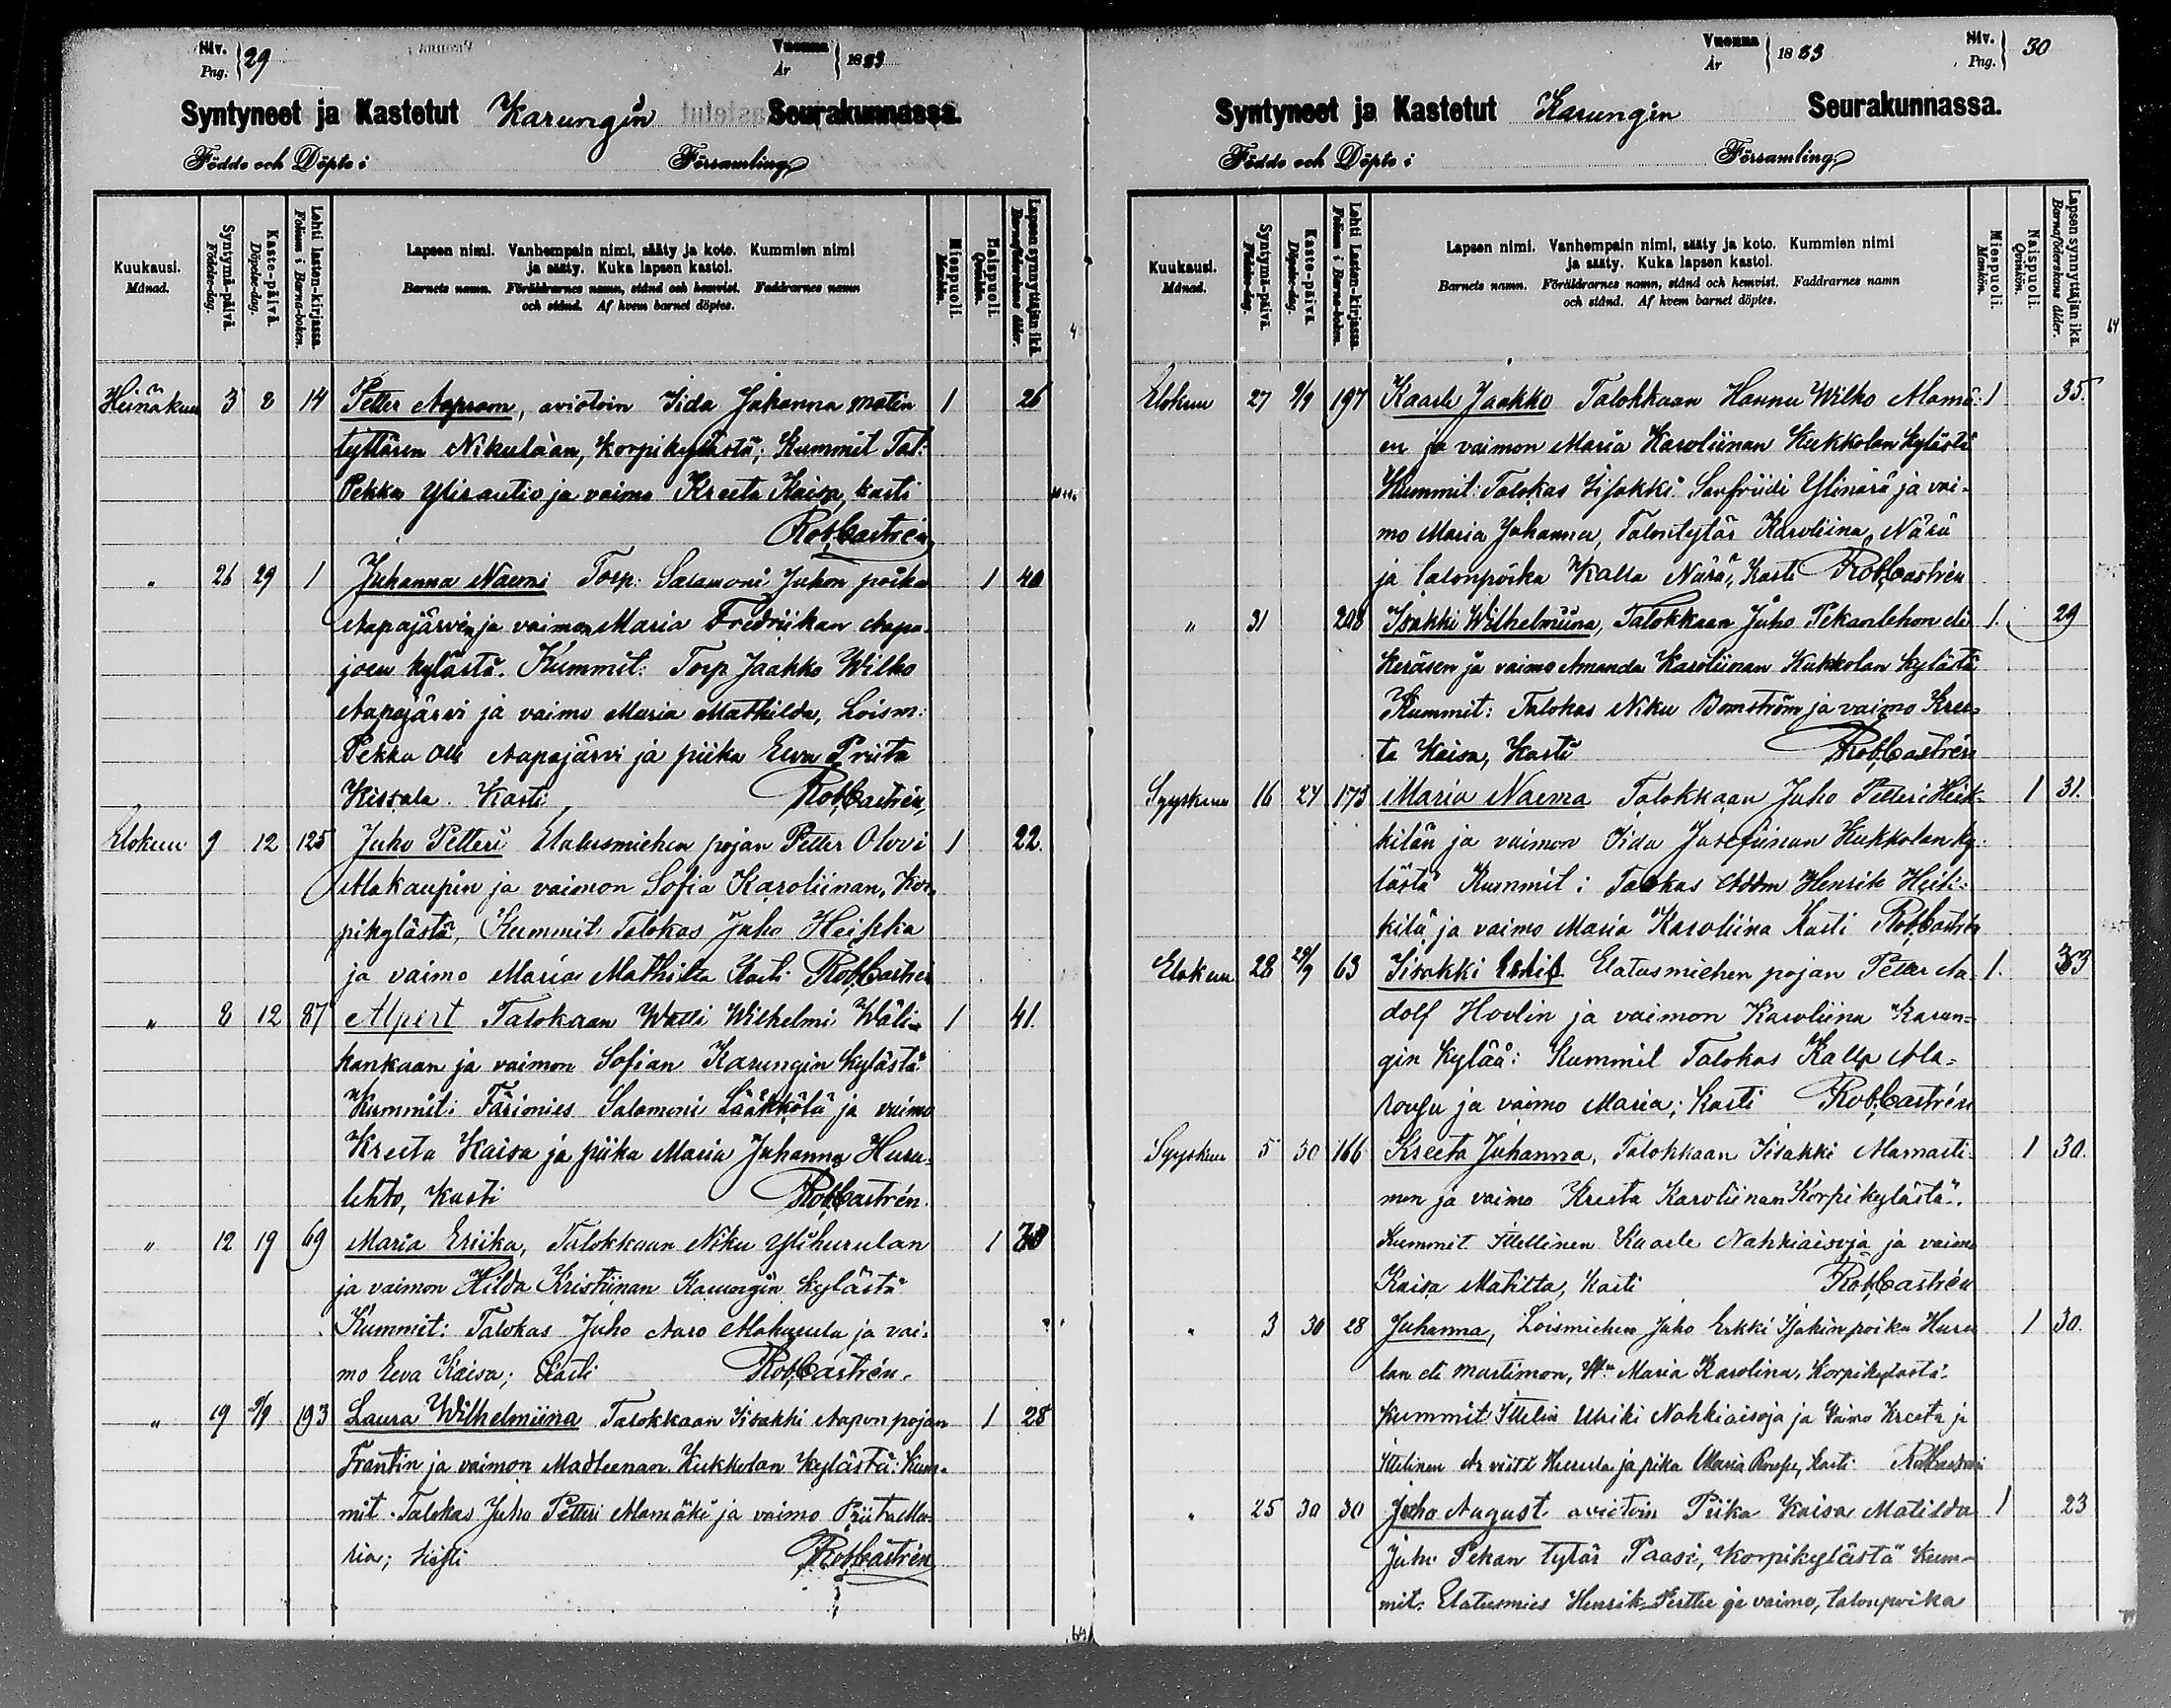 Siv. Pag. } 29
Vuonna År } 1883
Syntyneet ja Kastetut Karungin Seurakunnassa.
Födde och Döpte i Församling
Kuukausi. Månad.
Syntymä-päivä. Födelse-dag.
Kaste-päivä. Döpelse-dag.
Lehti lasten-kirjassa. Folium i Barna-boken.
Lapsen nimi. Vanhempain nimi, sääty ja koto. Kummien nimi
ja sääty. Kuka lapsen kastoi.
Barnets namn. Föräldrarnes namn, stånd och hemvist. Faddrarnes namn
och stånd. Af hvem barnet döptes.
Miespuoli. Mankön.
Naispuoli. Qvinkön.
Lapsen synnyttäjän ikä. Barnaföderskans ålder.
Heinäkuu 3 8 14 Petter Aapraam, aviotoin Iida Johanna Matin 1 26
tyttären Nikulaan, Korpikylästä; Kummit Tal:
Pekka Ylirautio ja vaimo Kreeta Kaisa, kasti
Rob. Castrén
" 26 29 1 Juhanna Naemi Torp: Salamoni Juhon poika 1 40
Aapajärvin ja vaimon Maria Fredriikan Aapa-
joen kylästä. Kummit: Torp Jaakko Wilho
Aapajärvi ja vaimo Maria Mathilda, Loism:
Pekka Olli Aapajärvi ja piika Ewa Priita
Kissala. Kasti Rob. Castrén
Elokuu 9 12 125 Juho Petteri Elatusmiehen pojan Petter Olovi 1 22.
Alakaupin ja vaimon Sofia Karoliinan, Kor-
pikylästä, Kummit Talokas Juho Heikka
ja vaimo Maria Mathilta Kasti Rob. Castrén
" 8 12 87 Alpert Talokaan Watti Wilhelmi Wäli- 1 41.
kankaan ja vaimon Sofian Karungin kylästä.
Kummit: Färimies Salomoni Lääkkölä ja vaimo
Kreeta Kaisa ja piika Maria Johanna Huru-
lehto, Kasti Rob. Castrén.
" 12 19 69 Maria Eriika, Talokkaan Niku Ylihurulan 1
ja vaimon Hilda Kristiinan Karungin kylästä
Kummit: Talokas Juho Aaro Alahurula ja vai-
mo Eeva Kaisa; Kasti Rob. Castrén.
" 19 193 Laura Wilhelmiina Talokkaan Iisakki Aapon pojan 1 28
Frantin ja vaimon Madleenan Kukkolan kylästä: Kum-
mit. Talokas Juho Petteri Alamäki ja vaimo Priita Ma-
ria; Kasti Rob. Castrén
Vuonna År } 1883
Siv. Pag. } 30
Syntyneet ja Kastetut Karungin Seurakunnassa.
Födde och Döpte i Församling
Kuukausi. Månad.
Syntymä-päivä. Födelse-dag.
Kaste-päivä. Döpelse-dag.
Lehti Lasten-kirjassa. Folium i Barna-boken.
Lapsen nimi. Vanhempain nimi, sääty ja koto. Kummien nimi
ja sääty. Kuka lapsen kastoi.
Barnets namn. Föräldrarnes namn, stånd och hemvist. Faddrarnes namn
och stånd. Af hvem barnet döptes.
Miespuoli. Mankön.
Naispuoli. Qvinkön.
Lapsen synnyttäjän ikä. Barnaföderskans ålder.
64
Elokuu 27 9/9 197 Kaarle Jaakko Talokkaan Hannu Wilho Alamä: 1 35.
en ja vaimon Maria Karoliinan Kukkolan kylästä
Kummit: Talokas Iisakki Sanfriidi Ylinärä ja vai-
mo Maria Johanna, Talontytär Karoliina Närä
ja talonpoika Kalla Närä, Kasti Rob. Castrén
" 31 208 Isakki Wilhelmiina, Talokkaan Juho Pekanlehon eli 1. 29
Keräsen ja vaimo Amanda Karoliinan Kukkolan kylästä
Kummit: Talokas Niku Bomström ja vaimo Kree-
ta Kaisa, Kasti Rob. Castrén
Syyskuu 16 24 173 Maria Naema Talokkaan Juho Petteri Heik- 1 31.
kilän ja vaimon Iida Josefiinan Kukkolan ky-
lästä Kummit: Talokas Addm Henrik Heik-
kilä ja vaimo Maria Karoliina Kasti Rob. Castrén
Elokuu 28 29/9 63 Iisakki Elatusmiehen pojan Petter Aa- 1. 33
dolf Hoolin ja vaimon Karoliina Karun-
gin kylää: Kummit Talokas Kalla Ala-
roufu ja vaimo Maria; Kasti Rob. Castrén
Syyskuu 5 30 166 Kreeta Juhanna, Talokkaan Iisakki Alamarti- 1 30.
mon ja vaimo Kreeta Karoliinan Korpikylästä.
Kummit Itellinen Kaarle Nahkiaisoja ja vaimo
Kaisa Matilta, Kasti Rob. Castrén
" 3 30 28 Juhanna, Loismiehen Juho Erkki Isakin poika Huru 1 30.
lan eli Martimon, Wn Maria Karolina, Korpikylästä.
Kummit Ittelin Uliki Nahkiaisoja ja Vaimo Kreeta ja
Ittelinen Hurula ja piika Maria, Kasti Rob. Castrén
" 25 30 30 Juho August aviotoin Piika Kaisa Matilda 1 23
Juho Pekan tytär Paasi, Korpikylästä Kum-
mit. Elatusmies Henrik Perttu ja vaimo, talonpoika